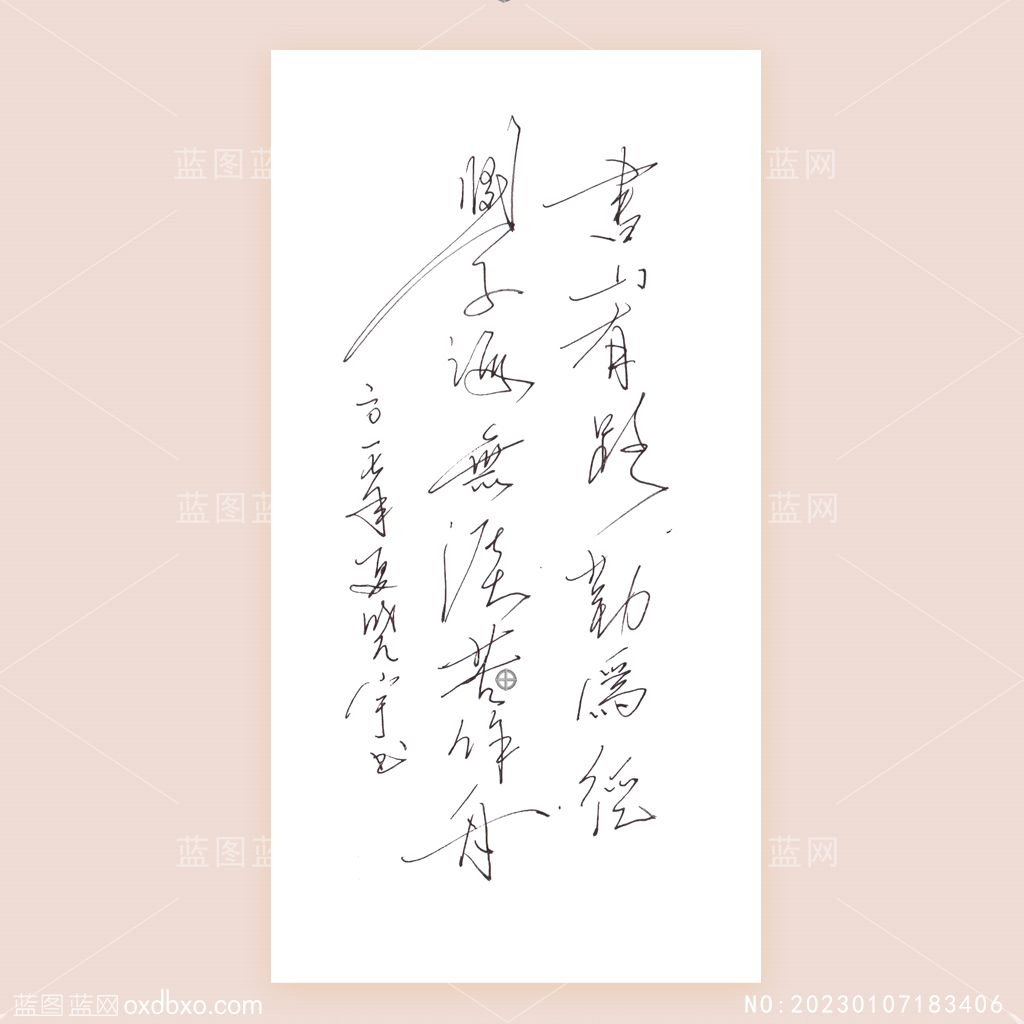 書山有路勤爲徑
學海無涯苦作舟
二〇一七年夏晓宇书
蓝图蓝网
蓝图蓝网
蓝图蓝网
蓝图蓝网oxdbxo.com
NO:20230107183406